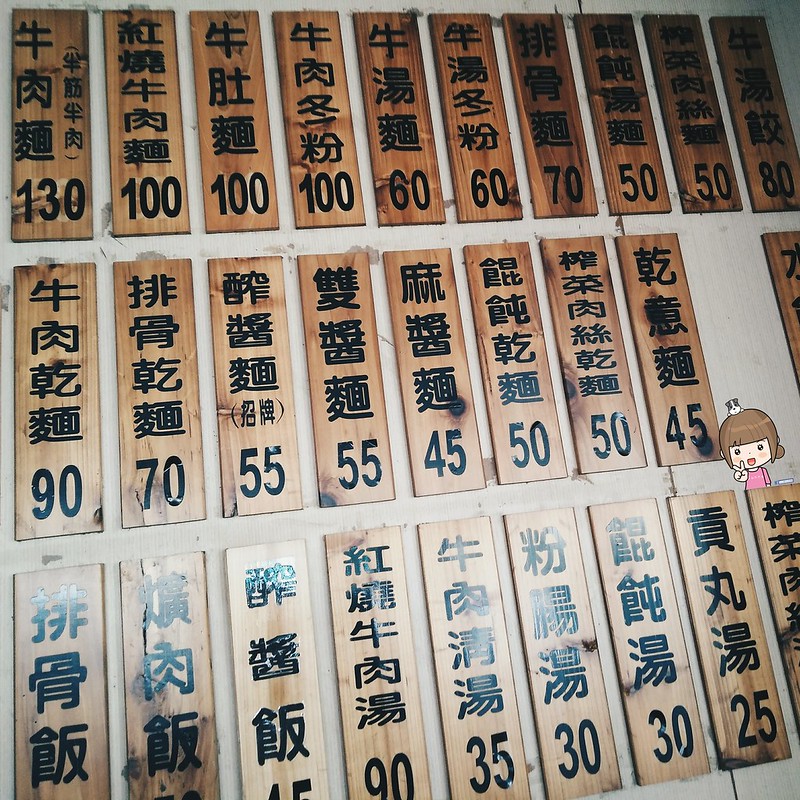 牛肉麵(半筋半肉)130
紅燒牛肉麵100
牛肚麵100
牛肉冬粉100
牛湯麵60
牛湯冬粉60
排骨麵70
餛飩湯麵50
榨菜肉絲麵50
牛湯餃80
牛肉乾麵90
排骨乾麵70
醡醬麵(招牌)55
雙醬麵55
麻醬麵45
餛飩乾麵50
榨菜肉絲乾麵50
乾意麵45
水
排骨飯
爌肉飯
醡醬飯
紅燒牛肉湯90
牛肉清湯35
粉腸湯30
餛飩湯30
貢丸湯25
榨菜肉絲